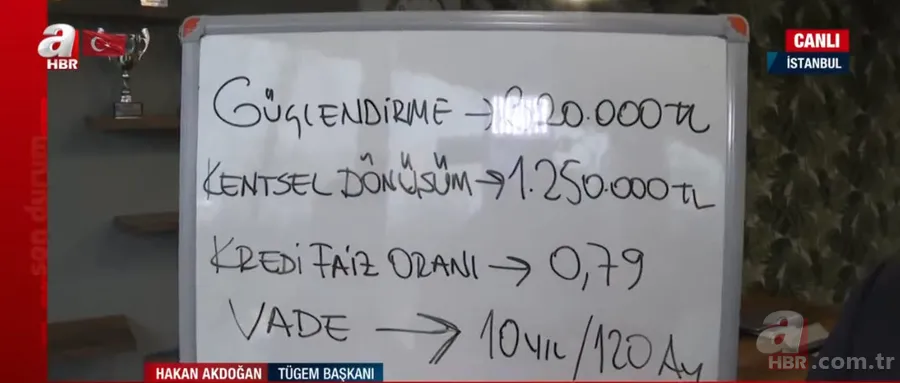 a
HBR
CANLI
İSTANBUL
son durum
GÜÇLENDİRME → 20.000 TL
KENTSEL DÖNÜŞÜM → 1.250.000 TL
KREDİ FAİZ ORANI → 0,79
VADE → 10 YIL / 120 Ay
HAKAN AKDOĞAN TÜGEM BAŞKANI
a
HBR.com.tr